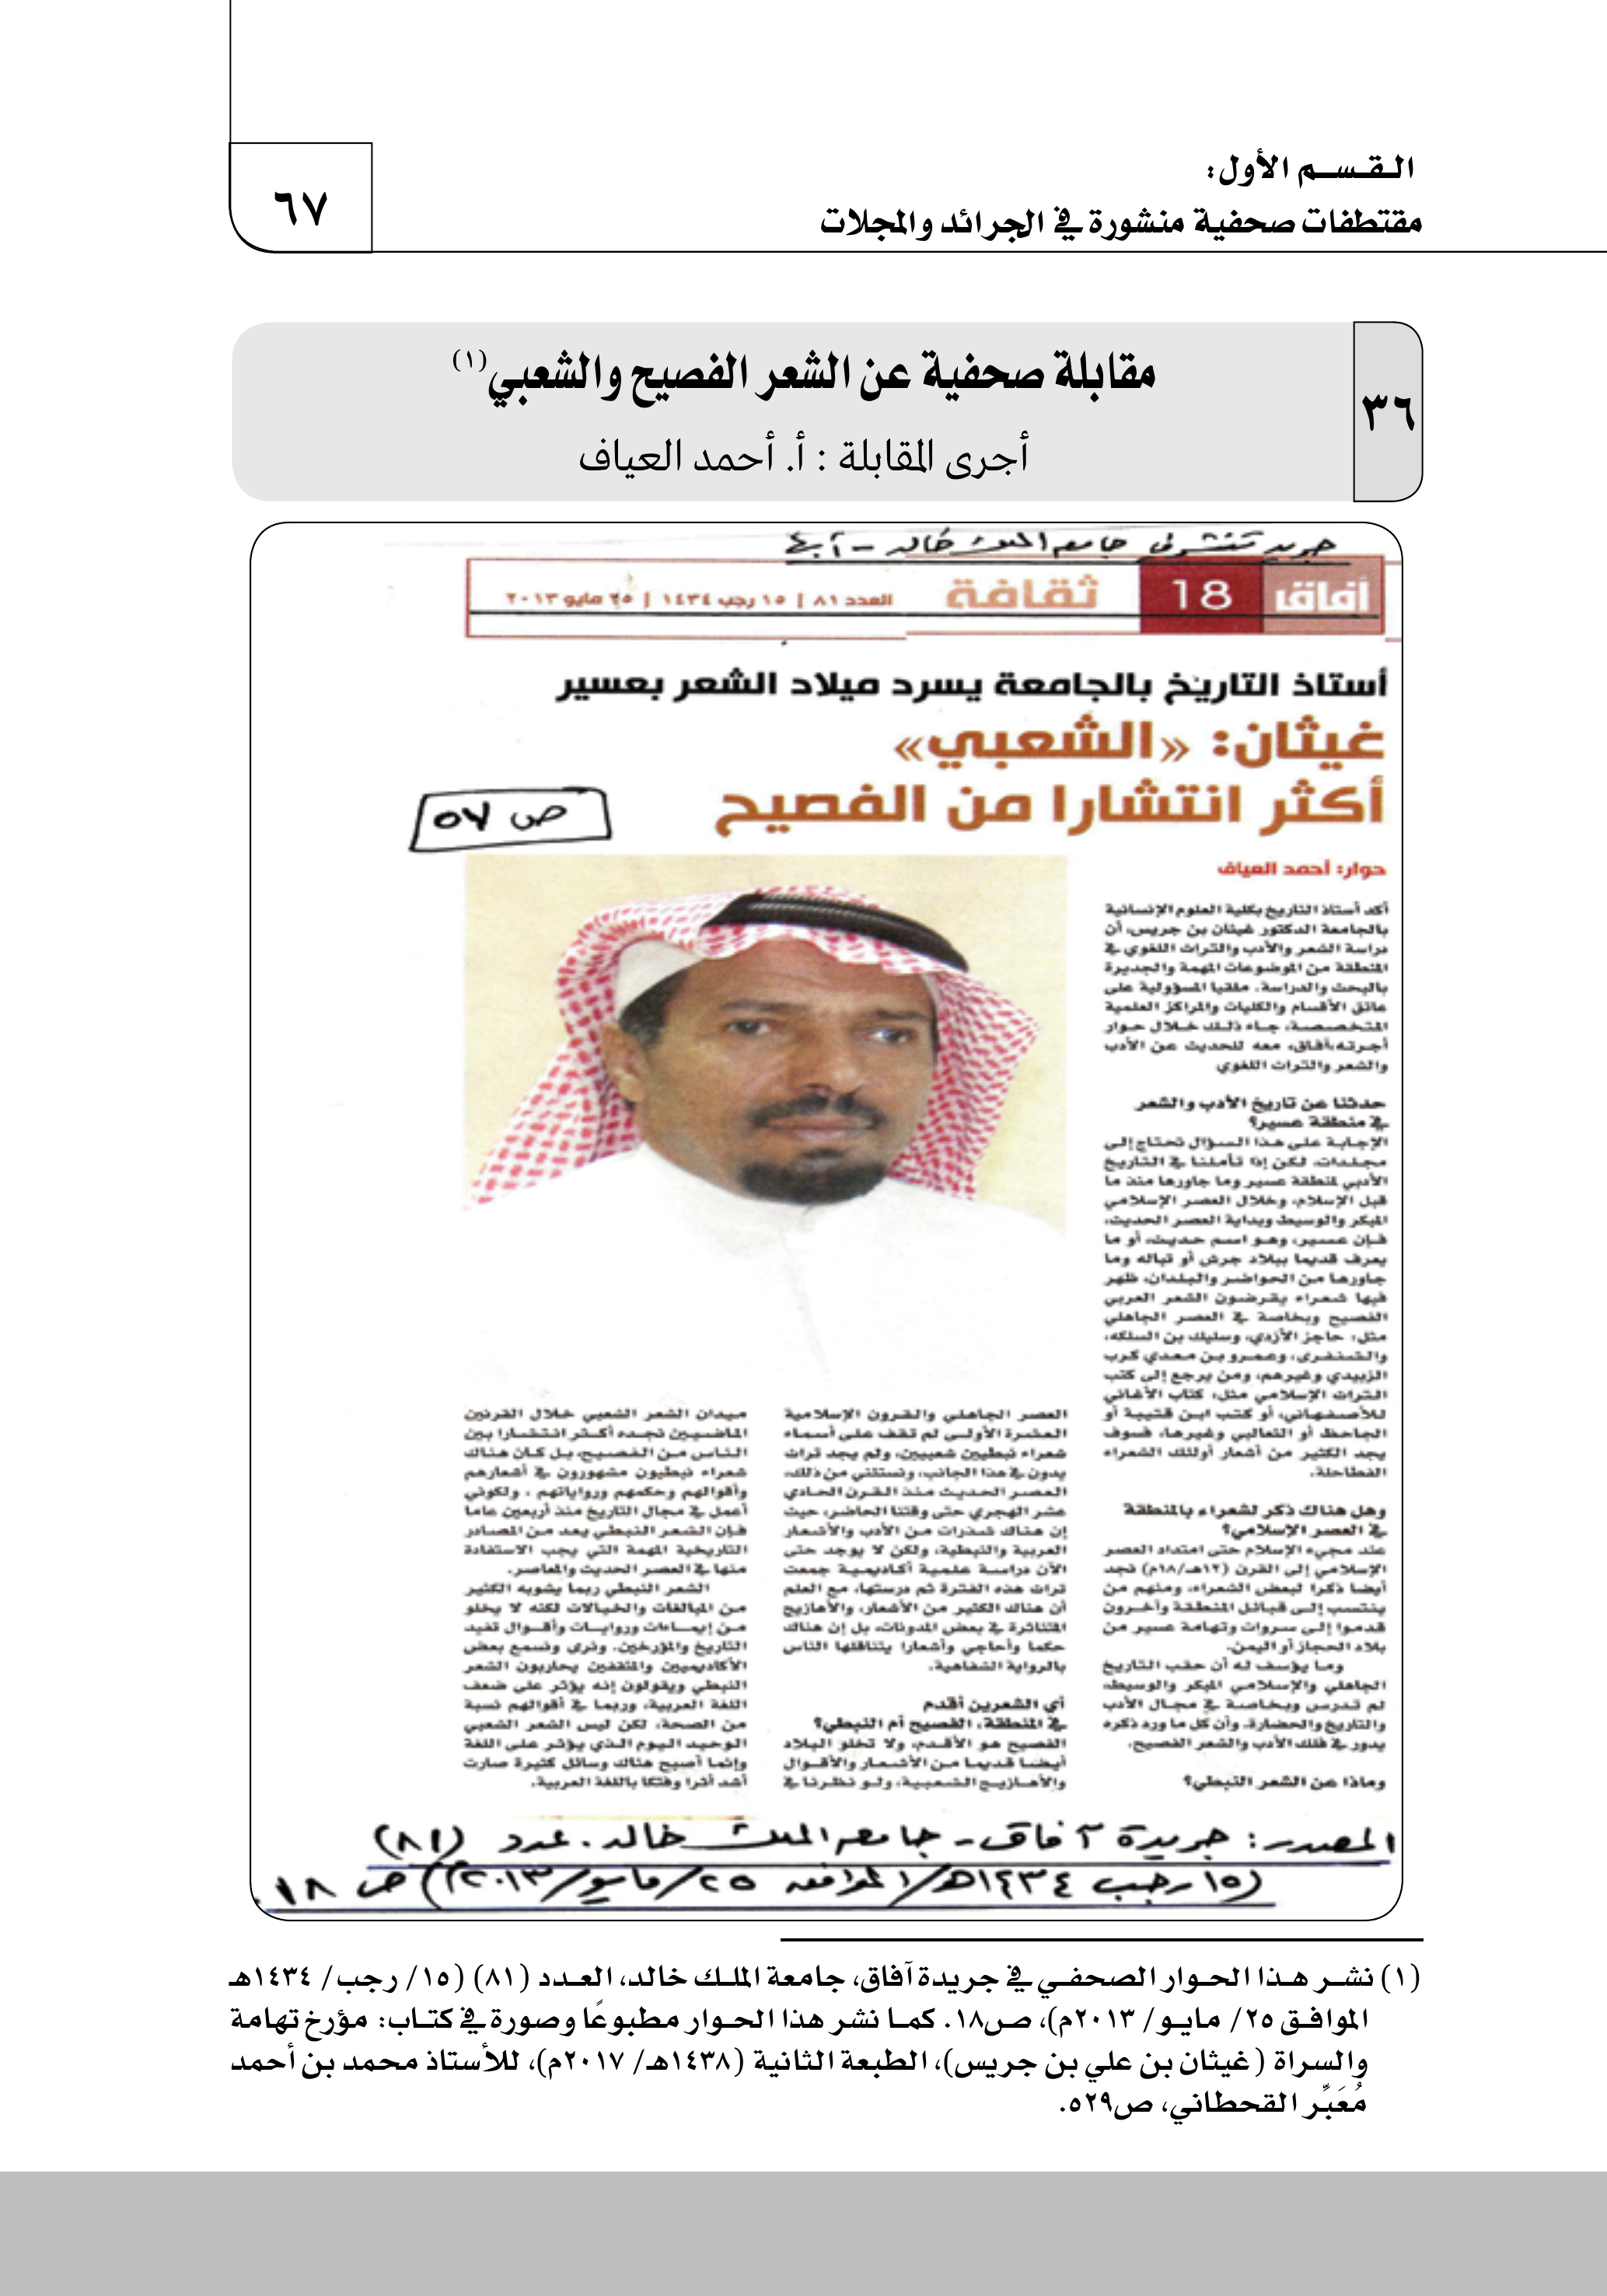 القسم الأول:
مقتطفات صحفية منشورة في الجرائد والمجلات
٦٧
٣٦
مقابلة صحفية عن الشعر الفصيح والشعبي(١)
أجرى المقابلة : أ. أحمد العياف
جامعة الملك خالد - أبها
آفاق
18
ثقافة
العدد ٨١ | ١٥ رجب ١٤٣٤ | ٢٥ مايو ٢٠١٣
أستاذ التاريخ بالجامعة يسرد ميلاد الشعر بعسير
غيثان: «الشعبي»
أكثر انتشارا من الفصيح
ص ٥٧
حوار: أحمد العياف
أكد أستاذ التاريخ بكلية العلوم الإنسانية
بالجامعة الدكتور غيثان بن جريس، أن
دراسة الشعر والأدب والتراث اللغوي في
المنطقة من الموضوعات المهمة والجديرة
بالبحث والدراسة، ملقيا المسؤولية على
عاتق الأقسام والكليات والمراكز العلمية
المتخصصة، جاء ذلك خلال حوار
أجرته «آفاق» معه للحديث عن الأدب
والشعر والتراث اللغوي
حدثنا عن تاريخ الأدب والشعر
في منطقة عسير؟
الإجابة على هذا السؤال تحتاج إلى
مجلدات، لكن إذا تأملنا في التاريخ
الأدبي لمنطقة عسير وما جاورها منذ ما
قبل الإسلام، وخلال العصر الإسلامي
المبكر والوسيط وبداية العصر الحديث،
فإن عسير، وهو اسم حديث، أو ما
يعرف قديما ببلاد جرش أو تباله وما
جاورها من الحواضر والبلدان، ظهر
فيها شعراء يقرضون الشعر العربي
الفصيح وبخاصة في العصر الجاهلي
مثل: حاجز الأزدي، وسليك بن السلكه،
والشنفرى، وعمرو بن معدي كرب
الزبيدي وغيرهم، ومن يرجع إلى كتب
التراث الإسلامي مثل: كتاب الأغاني
للأصفهاني، أو كتب ابن قتيبة أو
الجاحظ أو الثعالبي وغيرها، فسوف
يجد الكثير من أشعار أولئك الشعراء
الفطاحلة.
وهل هناك ذكر لشعراء بالمنطقة
في العصر الإسلامي؟
عند مجيء الإسلام حتى امتداد العصر
الإسلامي إلى القرن (١٢هـ/١٨م) نجد
أيضا ذكرا لبعض الشعراء، ومنهم من
ينتسب إلى قبائل المنطقة وآخرون
قدموا إلى سروات وتهامة عسير من
بلاد الحجاز أو اليمن.
وما يؤسف له أن حقب التاريخ
الجاهلي والإسلامي المبكر والوسيط،
لم تدرس وبخاصة في مجال الأدب
والتاريخ والحضارة، وأن كل ما ورد ذكره
يدور في فلك الأدب والشعر الفصيح.
وماذا عن الشعر النبطي؟
العصر الجاهلي والقرون الإسلامية
العشرة الأولى لم نقف على أسماء
شعراء نبطيين شعبيين، ولم يجد تراث
يدون في هذا الجانب، ونستثني من ذلك،
العصر الحديث منذ القرن الحادي
عشر الهجري حتى وقتنا الحاضر، حيث
إن هناك شذرات من الأدب والأشعار
العربية والنبطية، ولكن لا يوجد حتى
الآن دراسة علمية أكاديمية جمعت
تراث هذه الفترة ثم درستها، مع العلم
أن هناك الكثير من الأشعار، والأهازيج
المتناثرة في بعض المدونات، بل إن هناك
حكما وأحاجي وأشعارا يتناقلها الناس
بالرواية الشفاهية.
أي الشعرين أقدم
في المنطقة، الفصيح أم النبطي؟
الفصيح هو الأقدم، ولا تخلو البلاد
أيضا قديما من الأشعار والأقوال
والأهازيج الشعبية، ولو نظرنا في
ميدان الشعر الشعبي خلال القرنين
الماضيين نجده أكثر انتشارا بين
الناس من الفصيح، بل كان هناك
شعراء نبطيون مشهورون في أشعارهم
وأقوالهم وحكمهم ورواياتهم ، ولكوني
أعمل في مجال التاريخ منذ أربعين عاما
فإن الشعر النبطي يعد من المصادر
التاريخية المهمة التي يجب الاستفادة
منها في العصر الحديث والمعاصر.
الشعر النبطي ربما يشوبه الكثير
من المبالغات والخيالات لكنه لا يخلو
من إيماءات وروايات وأقوال تفيد
التاريخ والمؤرخين. ونرى ونسمع بعض
الأكاديميين والمثقفين يحاربون الشعر
النبطي ويقولون إنه يؤثر على ضعف
اللغة العربية، وربما في أقوالهم نسبة
من الصحة، لكن ليس الشعر الشعبي
الوحيد اليوم الذي يؤثر على اللغة
وإنما أصبح هناك وسائل كثيرة صارت
أشد أثرا وفتكا باللغة العربية.
المصدر: جريدة آفاق - جامعة الملك خالد. عدد (٨١)
(١٥ رجب ١٤٣٤هـ/ الموافق ٢٥/مايو/٢٠١٣م) ص ١٨.
(١) نشر هذا الحوار الصحفي في جريدة آفاق، جامعة الملك خالد، العدد (٨١) (١٥/ رجب/ ١٤٣٤هـ
الموافق ٢٥/ مايو/ ٢٠١٣م)، ص١٨. كما نشر هذا الحوار مطبوعًا وصورة في كتاب: مؤرخ تهامة
والسراة (غيثان بن علي بن جريس)، الطبعة الثانية (١٤٣٨هـ/ ٢٠١٧م)، للأستاذ محمد بن أحمد
مُعَبِّر القحطاني، ص٥٢٩.